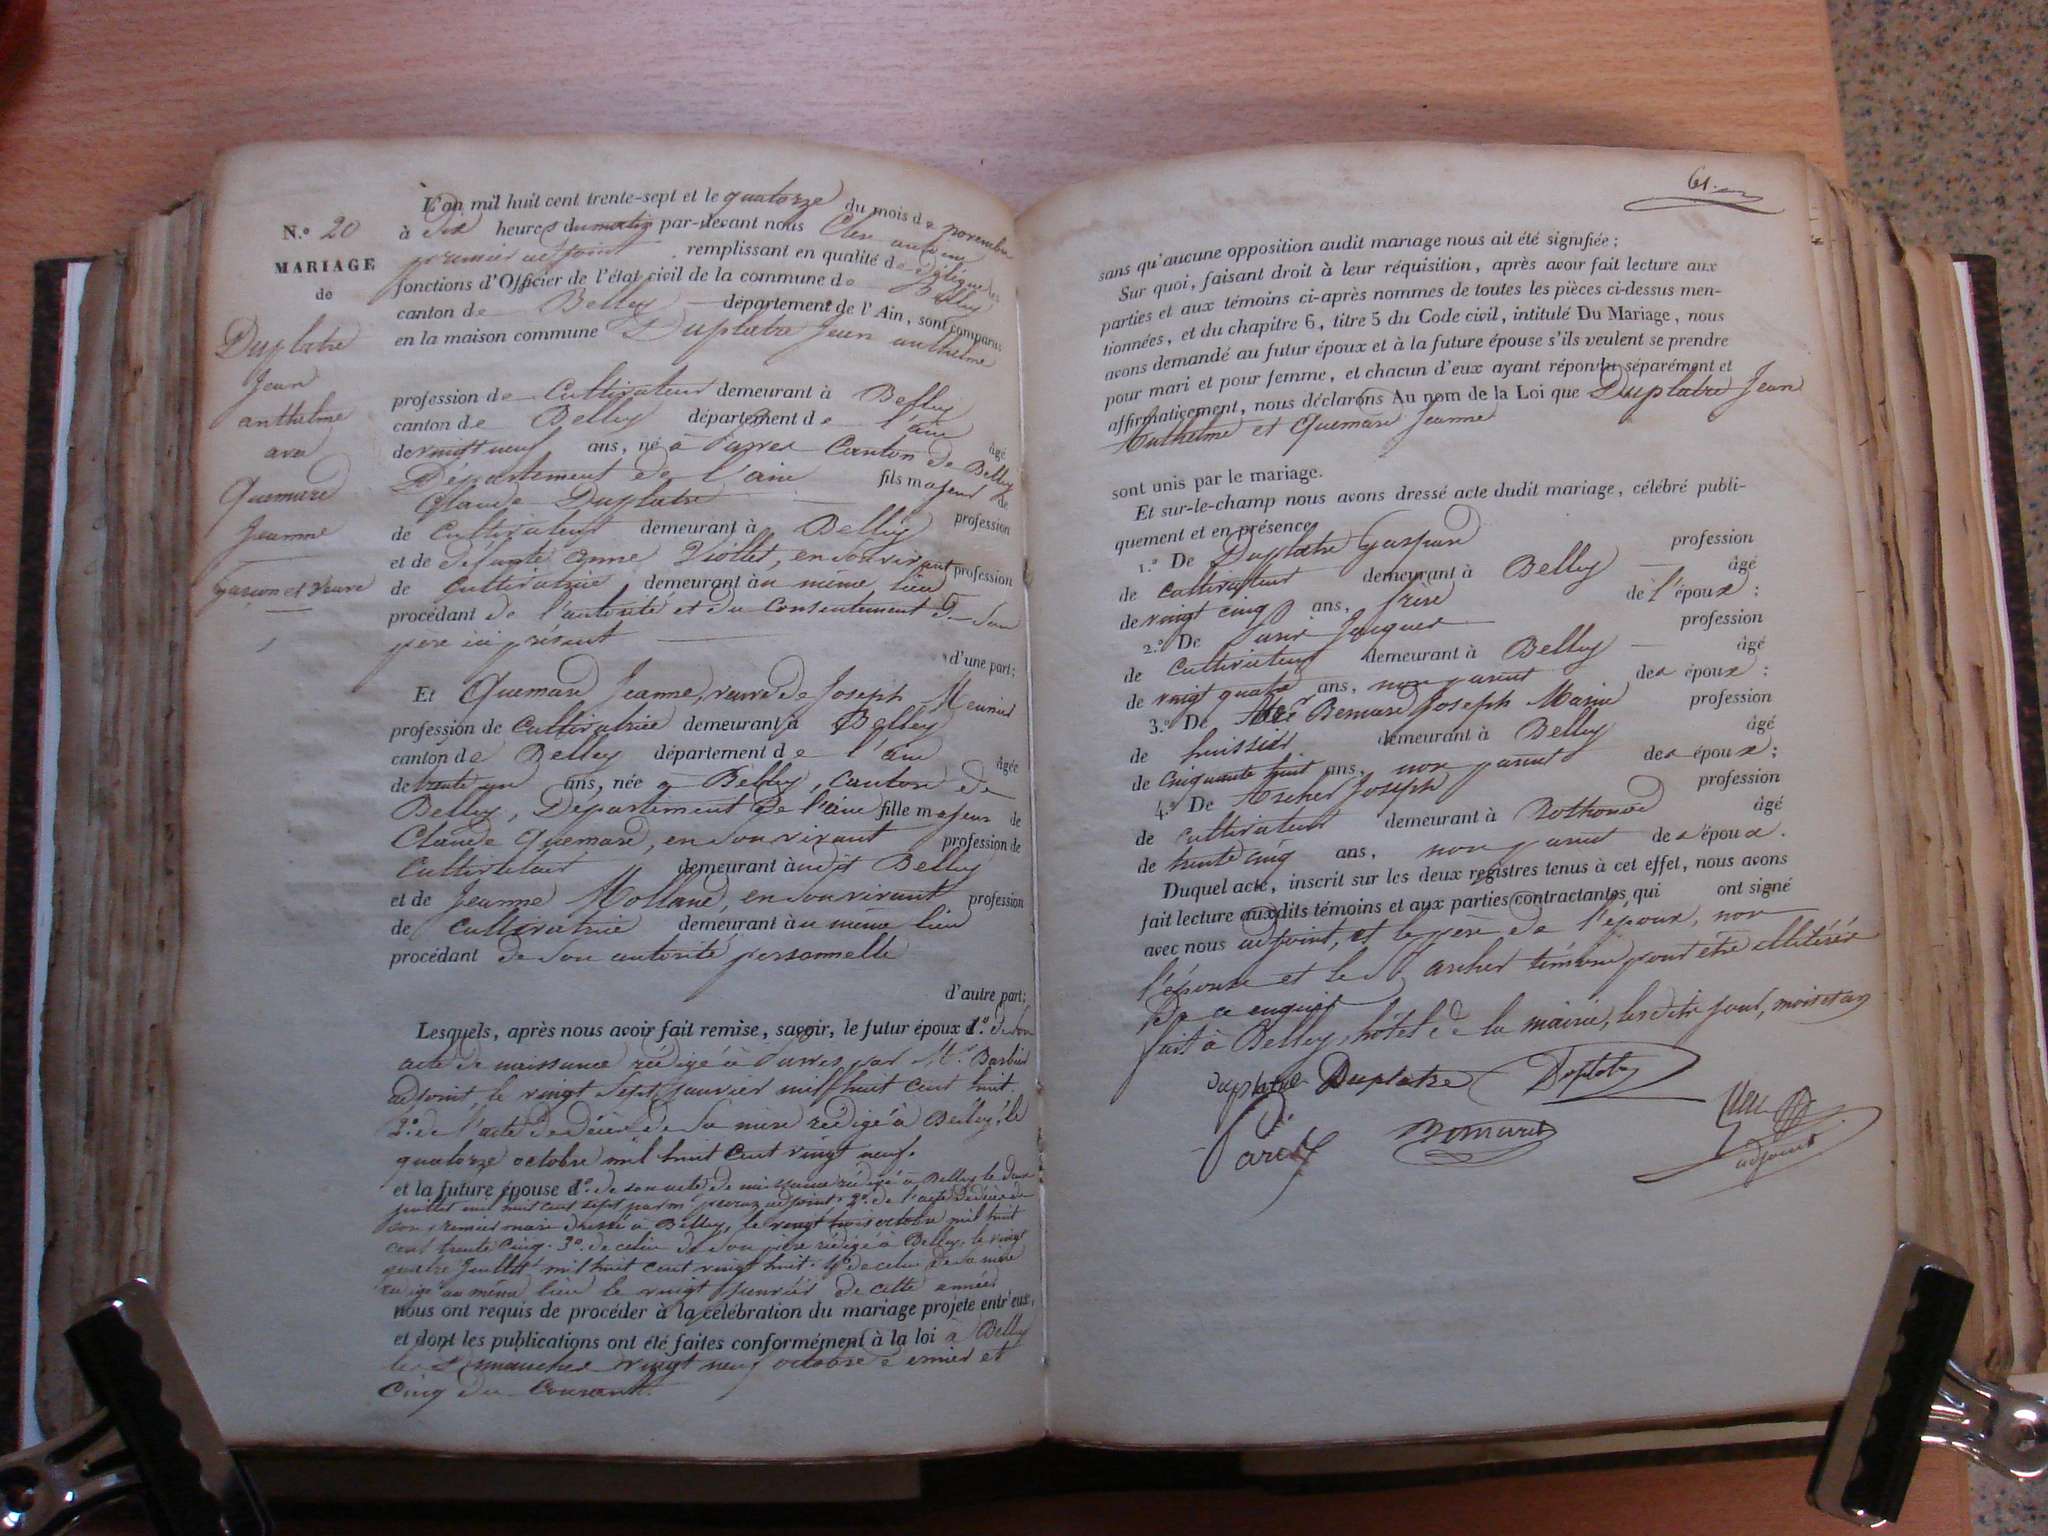 N.º 20
MARIAGE
de
Duplatre
Jean
anthelme
avec
Quemard
Jeanne
garçon et veuve
L'an mil huit cent trente-sept et le quatorze du mois de novembre
à dix heures du matin par-devant nous Clerc
premier adjoint remplissant en qualité de délégué les
fonctions d'Officier de l'état civil de la commune de Belley
canton de Belley département de l'Ain, sont comparus
en la maison commune Duplatre Jean anthelme
profession de Cultivateur demeurant à Belley
canton de Belley département de l'ain âgé
de vingt neuf ans, né à Parves Canton de Belley
Département de l'ain fils majeur de
Claude Duplatre profession
de Cultivateur demeurant à Belley
et de défunte Viollet, en son vivant profession
de Cultivatrice, demeurant au même lieu
procédant de l'autorité et du consentement de son
père ici présent
d'une part;
Et Quemard Jeanne, veuve de Joseph Meunier
profession de Cultivatrice demeurant à Belley
canton de Belley département de l'ain âgée
de trente un ans, née à Belley, canton de
Belley, Département de l'ain fille majeure de
Claude Quemard, en son vivant profession de
Cultivateur demeurant audit Belley
et de Jeanne Molland, en son vivant profession
de Cultivatrice demeurant au même lieu
procédant de son autorité personnelle
d'autre part;
Lesquels, après nous avoir fait remise, savoir, le futur époux 1.º de son
acte de naissance rédigé à Parves, par Mr. Barbier
adjoint, le vingt sept janvier mil huit cent huit,
2º. de l'acte de décès de sa mère rédigé à Belley, le
quatorze octobre mil huit cent vingt neuf.
et la future épouse 1º. de son acte de naissance rédigé à Belley le deux
juillet mil huit cent sept par adjoint. 2º. de l'acte de décès de
son premier mari dressé à Belley, le vingt trois octobre mil huit
cent trente cinq. 3º. de celui de son père rédigé à Belley, le vingt
quatre Juillet mil huit cent vingt huit. 4º de celui de sa mère
rédigé au même lieu le vingt janvier de cette année
nous ont requis de procéder à la célébration du mariage projeté entr'eux,
et dont les publications ont été faites conformément à la loi à Belley
les Dimanches vingt neuf octobre dernier et
cinq du Courant.
61.
sans qu'aucune opposition audit mariage nous ait été signifiée;
Sur quoi, faisant droit à leur réquisition, après avoir fait lecture aux
parties et aux témoins ci-après nommés de toutes les pièces ci-dessus men-
tionnées, et du chapitre 6, titre 5 du Code civil, intitulé Du Mariage, nous
avons demandé au futur époux et à la future épouse s'ils veulent se prendre
pour mari et pour femme, et chacun d'eux ayant répondu séparément et
affirmativement, nous déclarons Au nom de la Loi que Duplatre Jean
Anthelme et Quemard Jeanne
sont unis par le mariage.
Et sur-le-champ nous avons dressé acte dudit mariage, célébré publi-
quement et en présence
1.º De Duplatre Gaspard profession
de cultivateur demeurant à Belley âgé
de vingt cinq ans, frère de l'époux;
2.º De Jacques profession
de Cultivateur demeurant à Belley âgé
de vingt quatre ans, non parent des époux;
3.º De Bemard Joseph Marie profession
de huissier demeurant à Belley âgé
de Cinquante huit ans, non parent des époux;
4.º De Archer Joseph profession
de cultivateur demeurant à Rothonod âgé
de trente cinq ans, non parent des époux.
Duquel acte, inscrit sur les deux registres tenus à cet effet, nous avons
fait lecture auxdits témoins et aux parties contractantes, qui ont signé
avec nous adjoint, et le père de l'époux, non
l'épouse et le Sr. archer témoin pour être illitérés
de ce enquis
fait à Belley, hôtel de la mairie, lesdits jour, mois et an
duplatre Duplatre Duplatre
adjoint